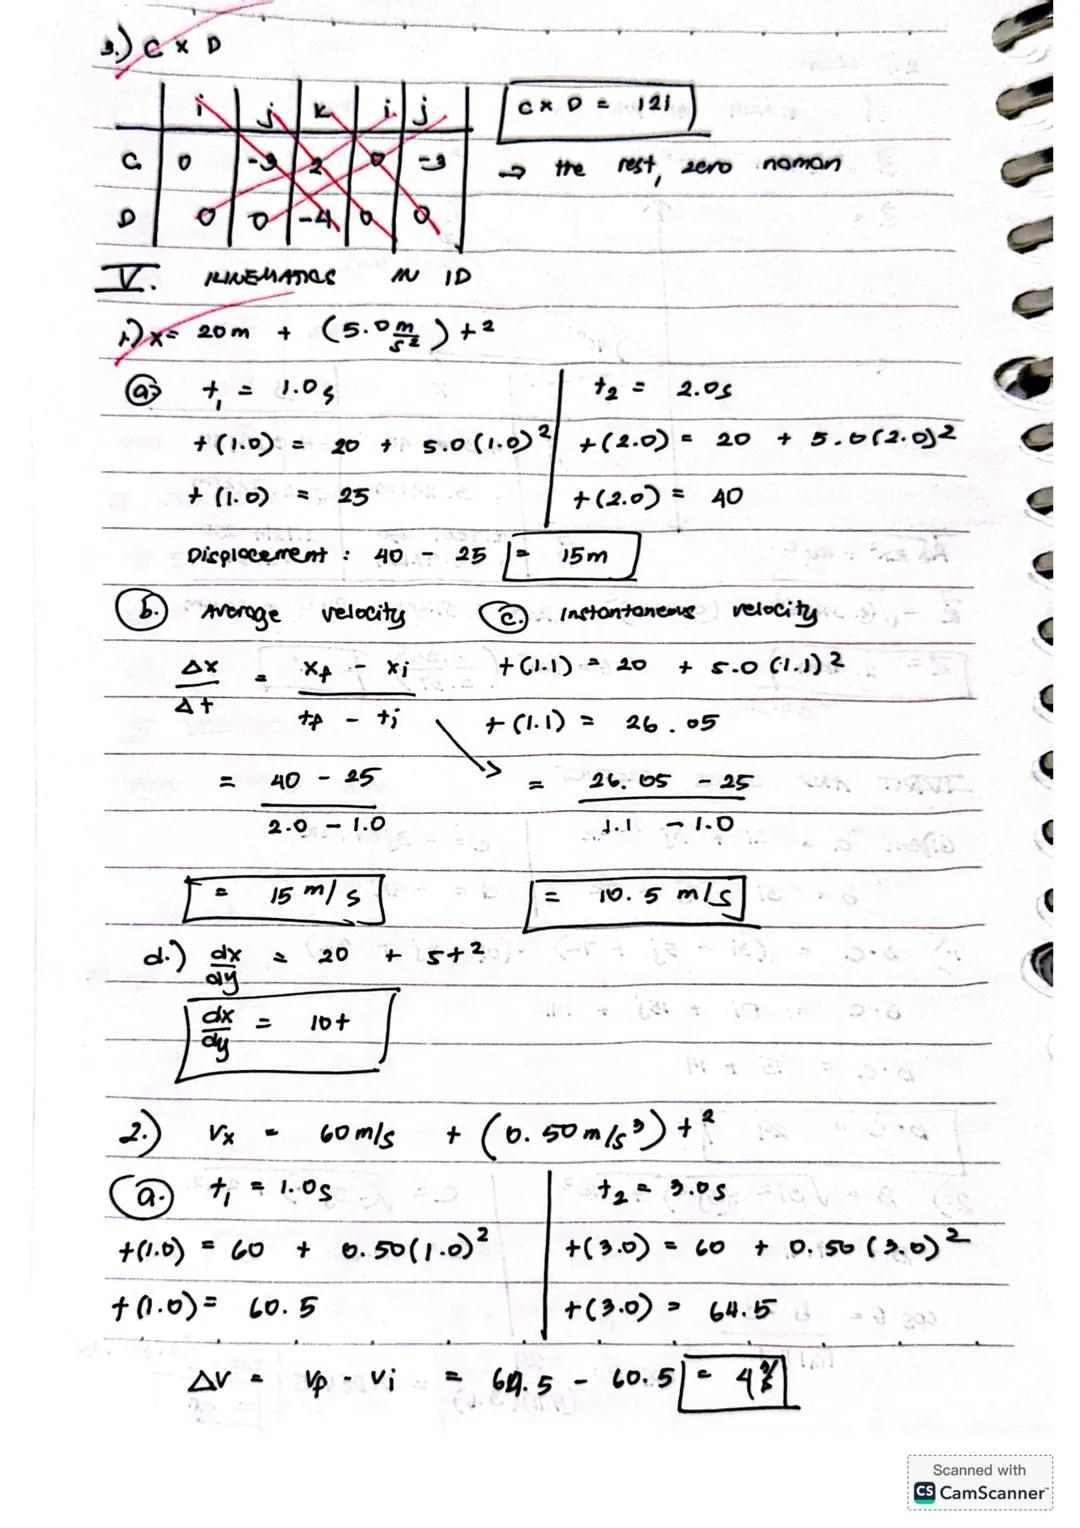 3.) C x D
i j k i j
C 0 -3 2 0 -3
D 0 0 -4 0 0
C x D = 12i
→ the rest, zero naman
V. KINEMATICS IN 1D
1.) x = 20m + (5.0 m/s²) t²
a. t₁ = 1.0s
t₂ = 2.0s
t(1.0) = 20 + 5.0(1.0)²
t(2.0) = 20 + 5.0(2.0)²
t(1.0) = 25
t(2.0) = 40
Displacement : 40 - 25 = 15m
b. Average velocity
c. Instantaneous velocity
Δx/Δt = xf - xi / tf - ti
t(1.1) = 20 + 5.0 (1.1)²
t(1.1) = 26.05
= 40 - 25 / 2.0 - 1.0
= 26.05 - 25 / 1.1 - 1.0
= 15 m/s
= 10.5 m/s
d.) dx/dy = 20 + 5t²
dx/dy = 10t
2.) Vx = 60m/s + (0.50 m/s³) t²
a. t₁ = 1.0s
t₂ = 3.0s
t(1.0) = 60 + 0.50(1.0)²
t(3.0) = 60 + 0.50(3.0)²
t(1.0) = 60.5
t(3.0) = 64.5
ΔV = Vf - Vi = 64.5 - 60.5 = 4
Scanned with
CS CamScanner